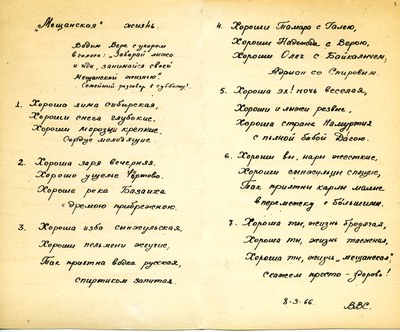 "Мещанская" жизнь.
Вадим Вере с укором
в голосе: "Забирай лыжи
и иди, занимайся своей
Мещанской жизнью".
Семейный разговор в субботу.
1. Хороша зима сибирская,
Хороши снега глубокие,
Хороши морозцы крепкие,
Сердце молодящие
2. Хороша заря вечерняя,
Хорошо ущелье Чёртово,
Хороша река Базаиха
с дремою прибрежною.
3. Хороша изба сынжульская,
Хороши пельмени жгучие,
Так приятна водка русская,
спиртиком запитая.
4. Хороши Тамара с Галею,
Хороши Надежда с Верою,
Хороши Олег с Байкальчем,
Адриан со Спировым.
5. Хороша эх! ночь веселая,
Хороши и лыжи резвые,
Хороша страна Палуртия
с пьяной бабой Дагою.
6. Хороши вы, нары жесткие,
Хороши сынжульцы спящие,
Так приятны карлы малые
вперемежку с бо́льшими.
7. Хороша ты, жизнь бродячая,
Хороша ты, жизнь таежная,
Хороша ты, жизнь "мещанская"
Скажем просто - здорово!
8-3-66. ВВС.